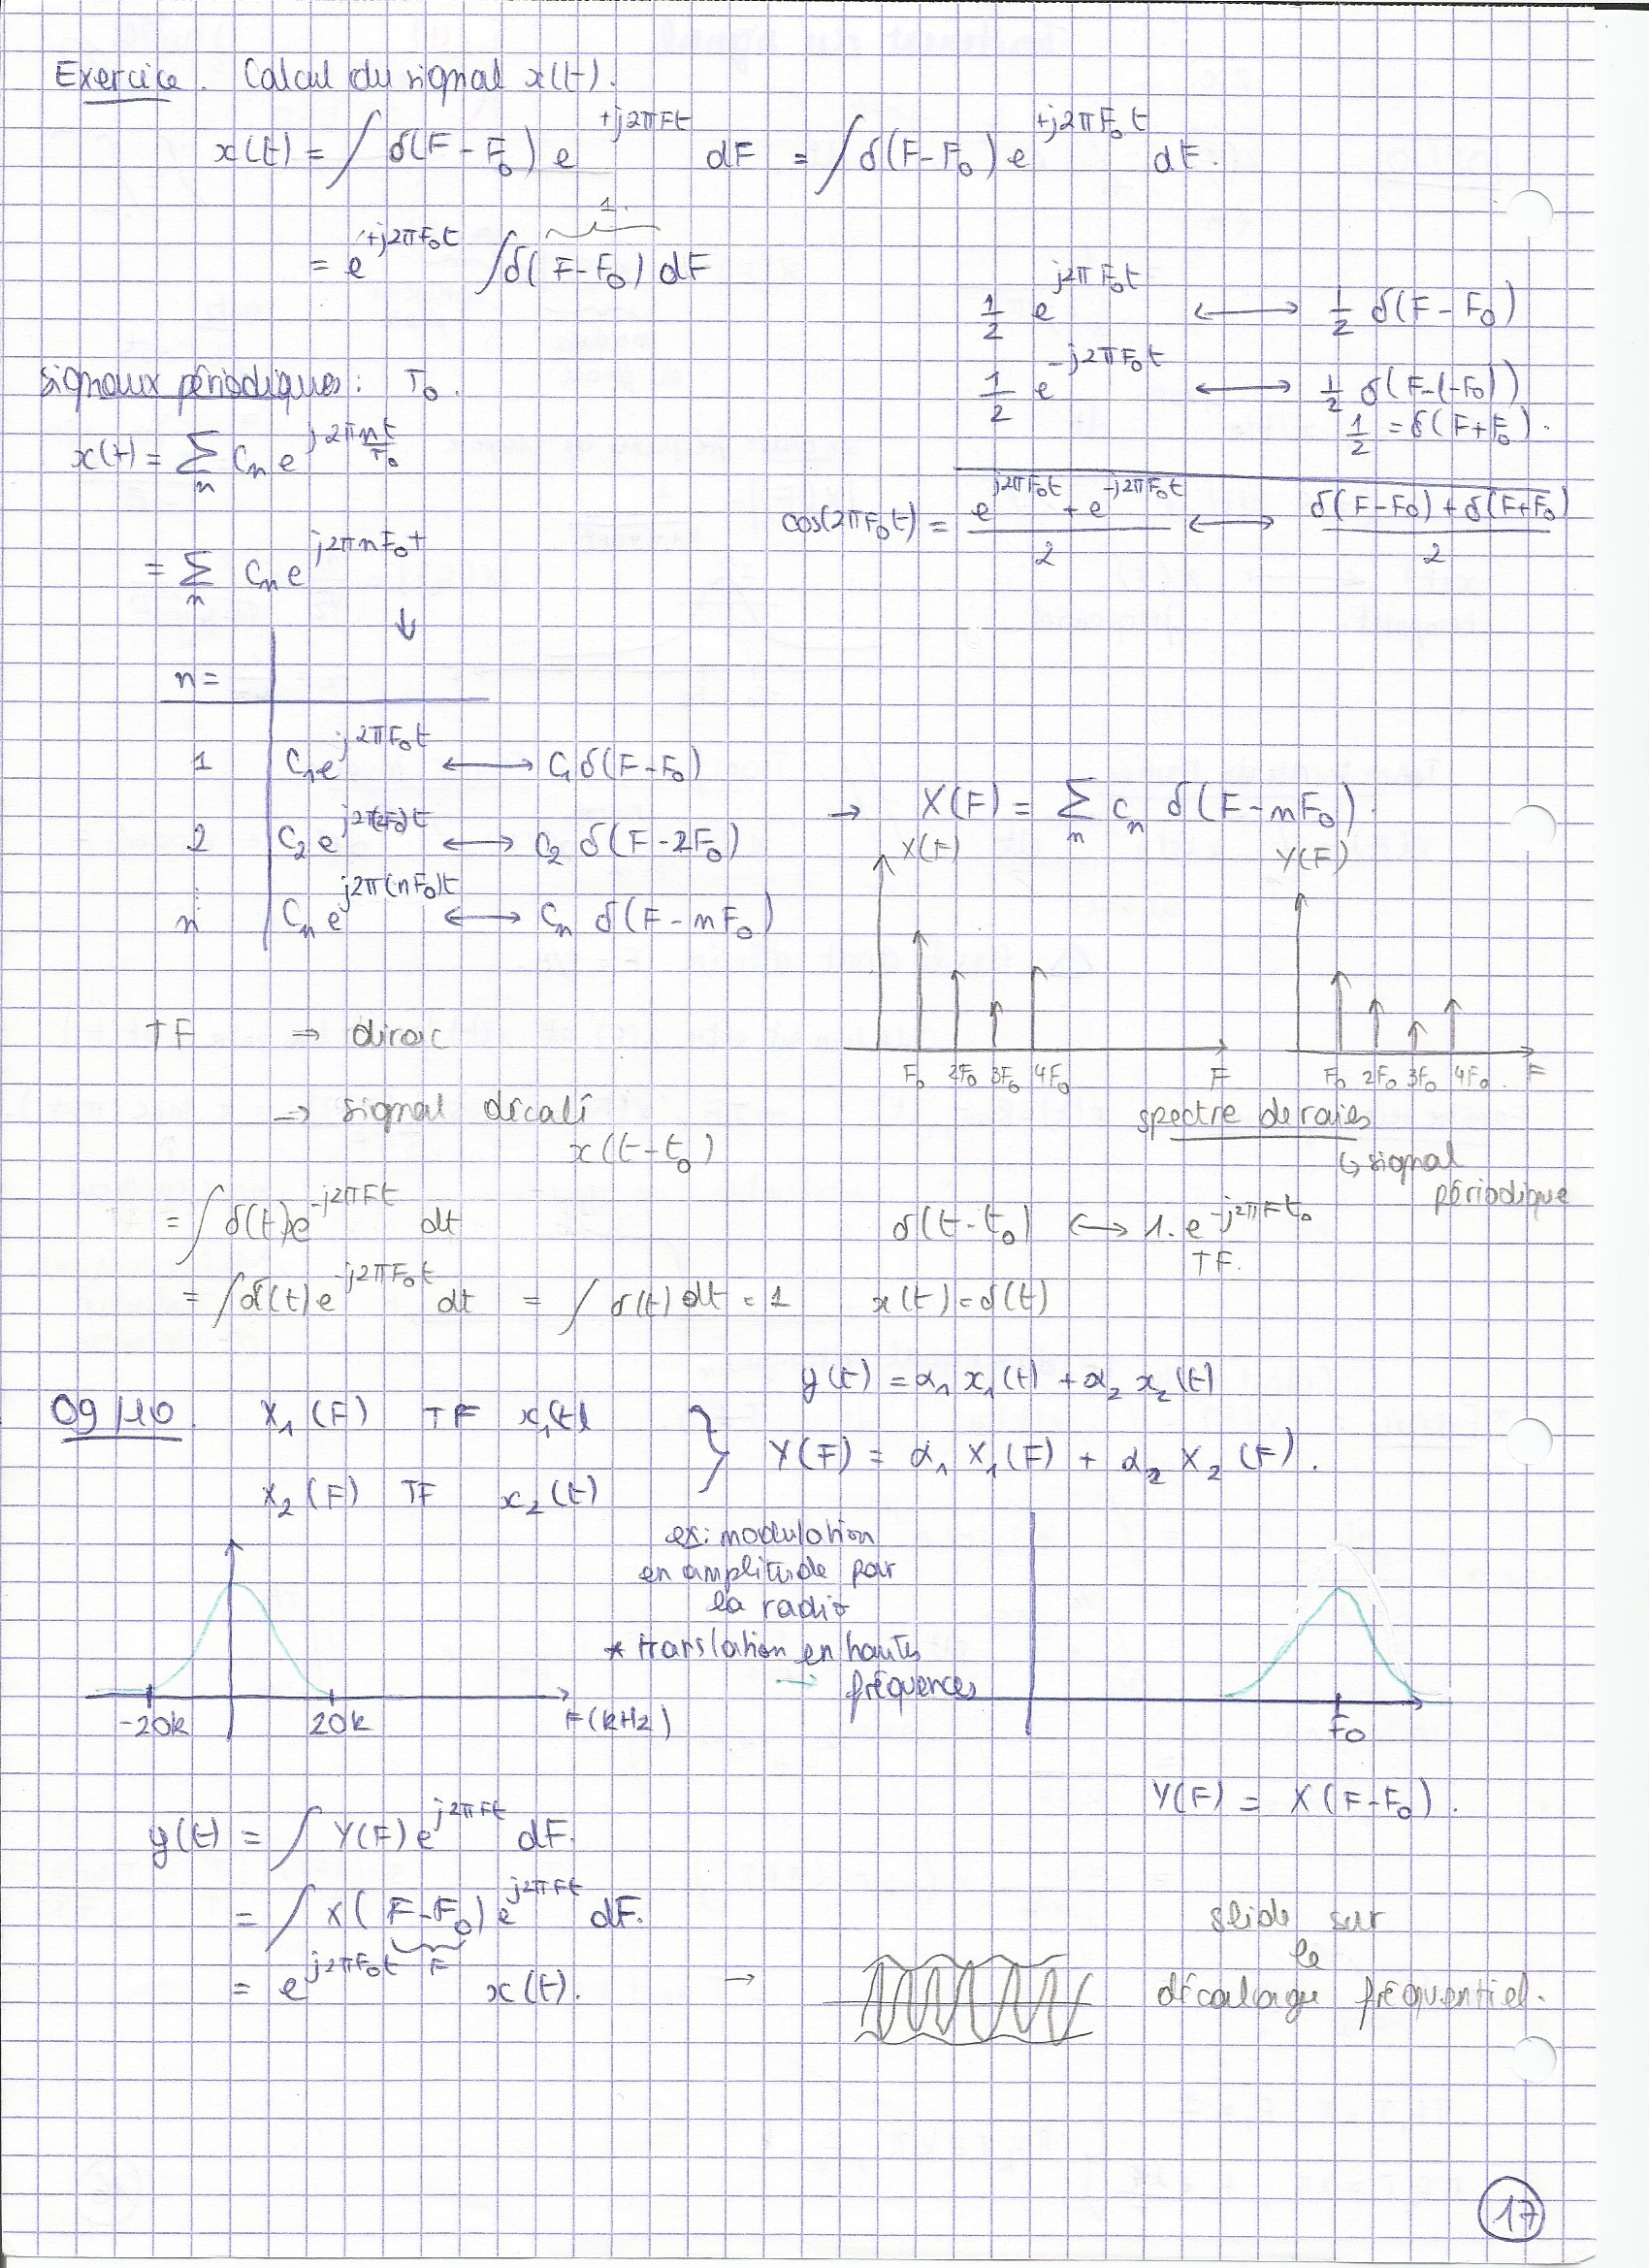 Exercice. Calcul du signal x(t).
x(t) = ∫ δ(F - F₀) e^{+j2πFt} dF = ∫ δ(F-F₀) e^{+j2πF₀t} dF.
= e^{+j2πF₀t} ∫ δ(F-F₀) dF
1.
1/2 e^{j2πF₀t} ⟷ 1/2 δ(F - F₀)
1/2 e^{-j2πF₀t} ⟷ 1/2 δ(F-(-F₀))
1/2 = δ(F+F₀).
cos(2πF₀t) = (e^{j2πF₀t} + e^{-j2πF₀t})/2 ⟷ (δ(F-F₀) + δ(F+F₀))/2
signaux périodiques : T₀.
x(t) = Σₙ Cₙ e^{j2πnt/T₀}
= Σₙ Cₙ e^{j2πnF₀t}
↓
n =
1 C₁e^{j2πF₀t} ⟷ C₁ δ(F-F₀)
2 C₂ e^{j2π(2F₀)t} ⟷ C₂ δ(F-2F₀)
n Cₙ e^{j2π(nF₀)t} ⟷ Cₙ δ(F-nF₀)
→ X(F) = Σₙ Cₙ δ(F-nF₀).
X(F)
F₀ 2F₀ 3F₀ 4F₀ F
Y(F)
F₀ 2F₀ 3F₀ 4F₀. F
spectre de raies
↳ signal
périodique
TF ⇒ dirac
⇒ signal décalé
x(t-t₀)
= ∫ δ(t)e^{-j2πFt} dt
δ(t-t₀) ⟷ 1. e^{-j2πFt₀}
TF.
= ∫ δ(t)e^{-j2πF₀t} dt = ∫ δ(t) dt = 1 x(t)=δ(t)
y(t) = α₁ x₁(t) + α₂ x₂(t)
09/10. X₁(F) TF x₁(t)
X₂(F) TF x₂(t)
} Y(F) = α₁ X₁(F) + α₂ X₂(F).
ex: modulation
en amplitude par
la radio
* translation en hautes
→ fréquences
-20k 20k F(kHz)
F₀
Y(F) = X(F-F₀).
y(t) = ∫ Y(F) e^{j2πFt} dF.
= ∫ X(F-F₀) e^{j2πFt} dF.
F
= e^{j2πF₀t} x(t). →
slide sur
le
décalage fréquentiel.
17